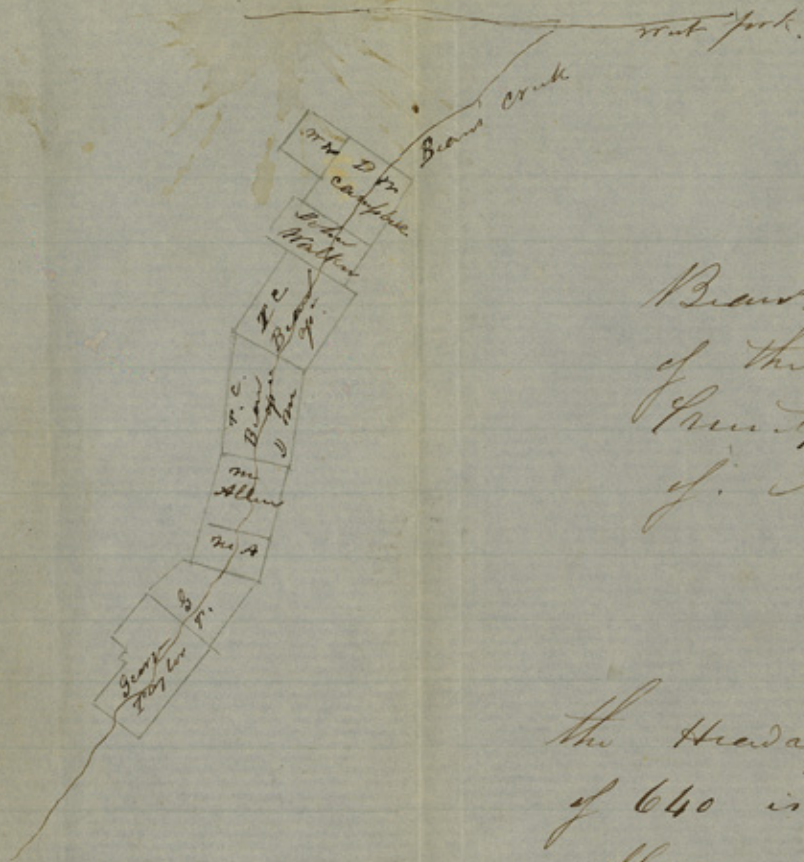 west fork.
Beans Creek
Wm D M
Campbell
John
Walker
T C
Bean
T. C.
Bean
D M
m
Allen
m A
G
T.
George
Taylor
Bean
of the
of.
the Head
of 640 is